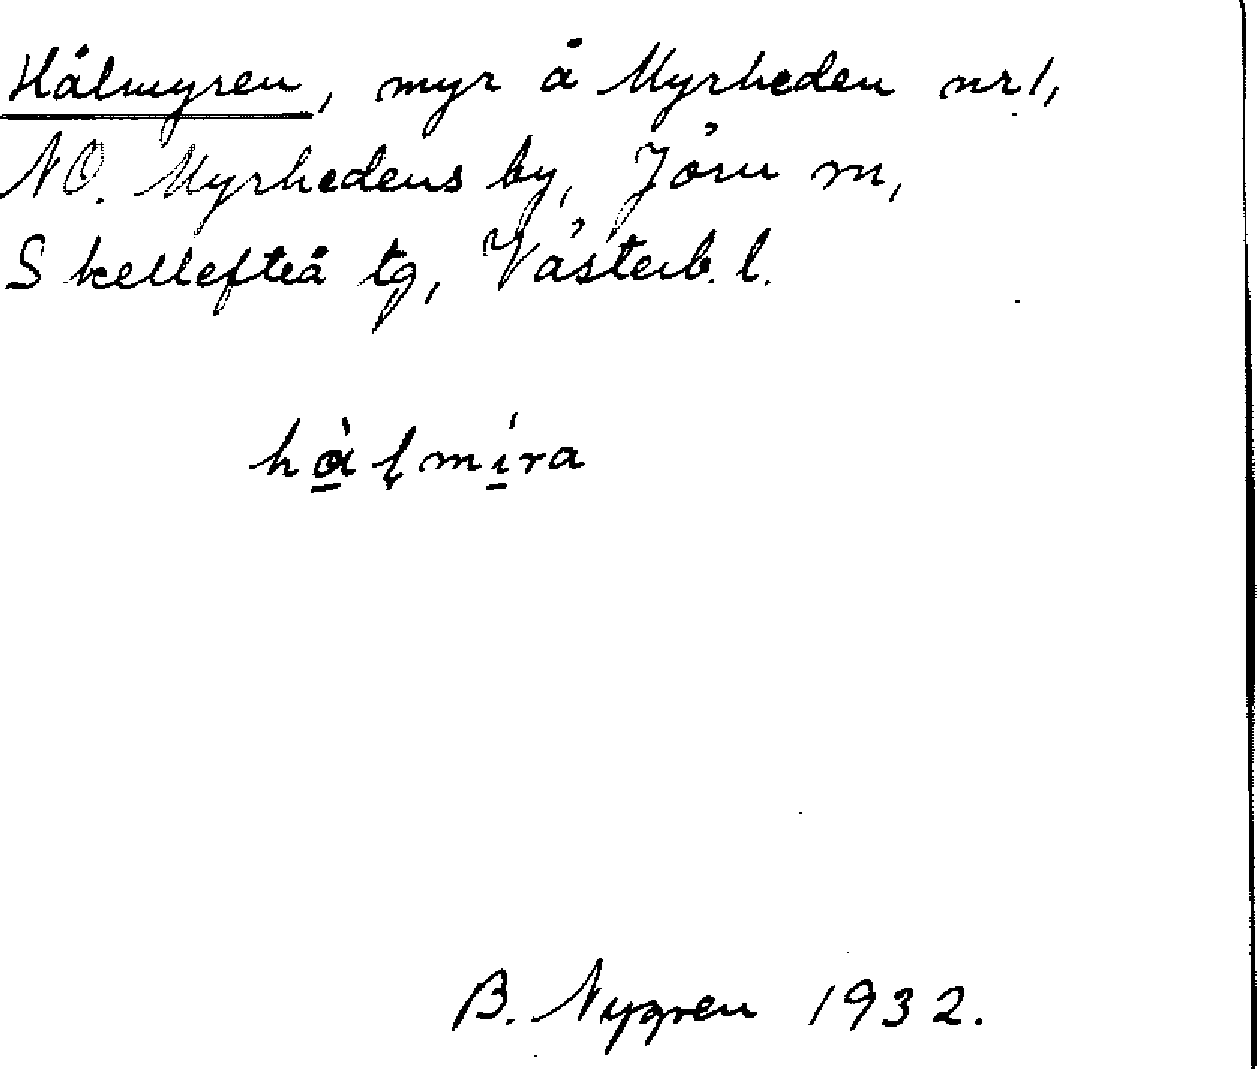 Hålmyren, myr å Myrheden nr 1,
NO. Myrhedens by, Jörn m,
Skellefteå tg, Västerb. l.
hàlmíra
B. Nygren 1932.